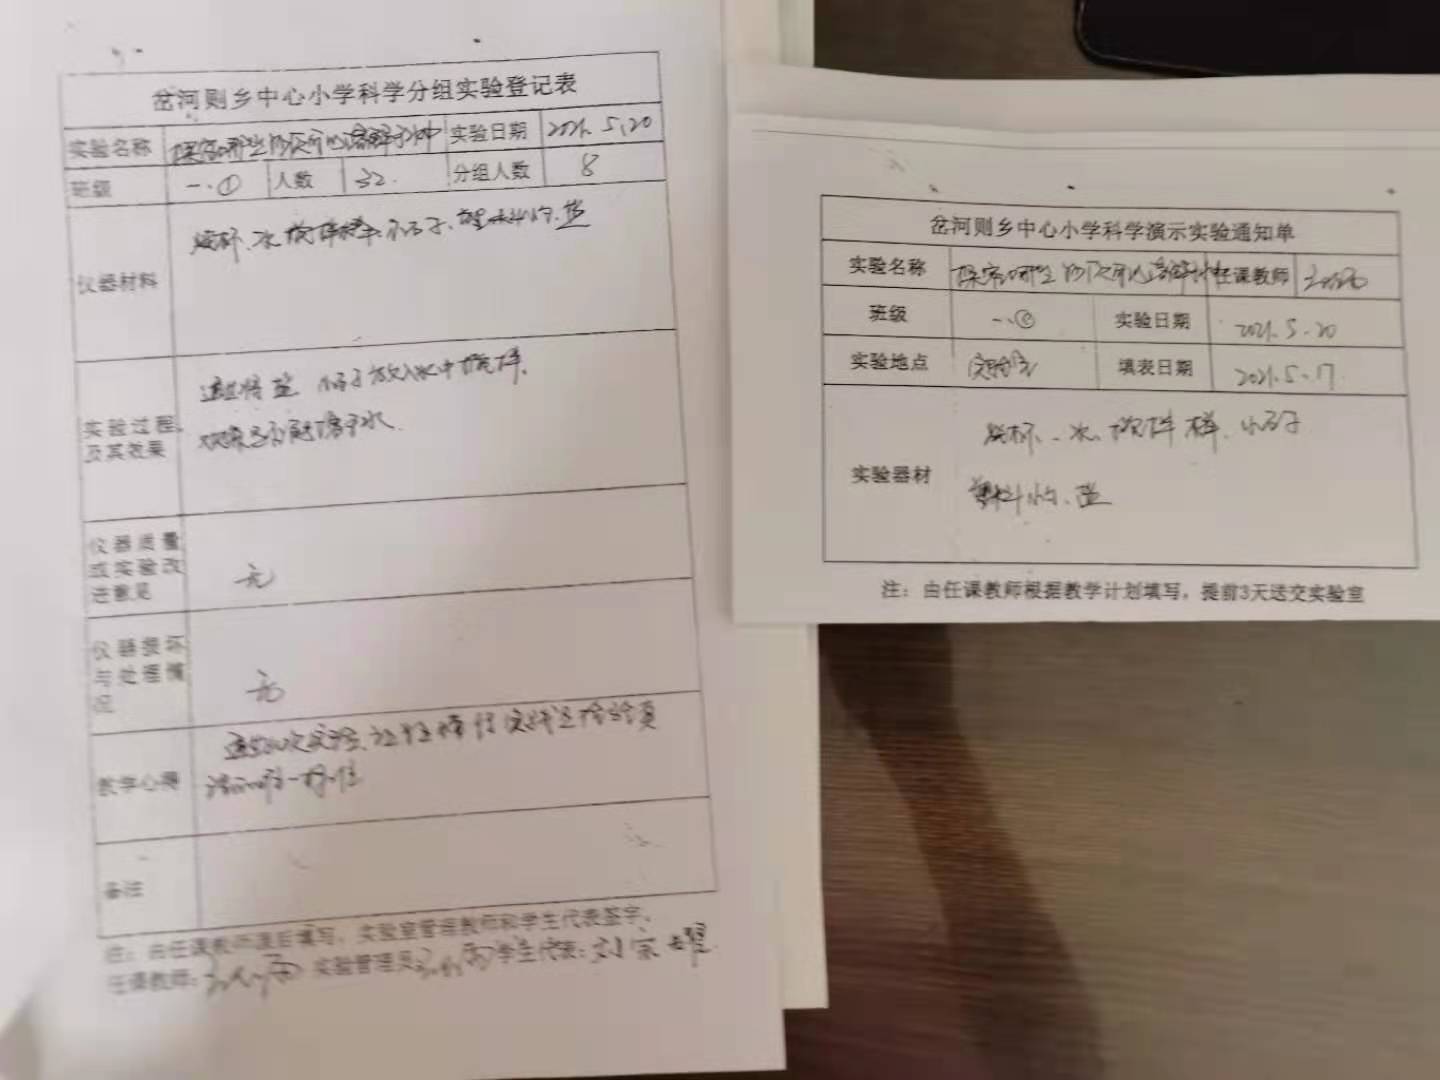 岔河则乡中心小学科学分组实验登记表
实验名称 探究哪些物质可以溶解于水中 实验日期 2021.5.20
班级 一.① 人数 32. 分组人数 8
仪器材料 烧杯、水、搅拌棒、小石子、塑料小勺、盐
实验过程及其效果 通过将盐 小石子放入水中搅拌,
观察是否能溶于水.
仪器质量或实验改进意见 无
仪器损坏与处理情况 无
教学心得 通过此次实验,
备注
注:由任课教师课后填写,实验室管理教师和学生代表签字。
任课教师: 实验管理员 学生代表:刘宗
岔河则乡中心小学科学演示实验通知单
实验名称 探究哪些物质可以溶解 任课教师
班级 一.① 实验日期 2021.5.20
实验地点 实验室 填表日期 2021.5.17.
实验器材 烧杯、水、搅拌棒、小石子
塑料小勺、盐
注: 由任课教师根据教学计划填写,提前3天送交实验室